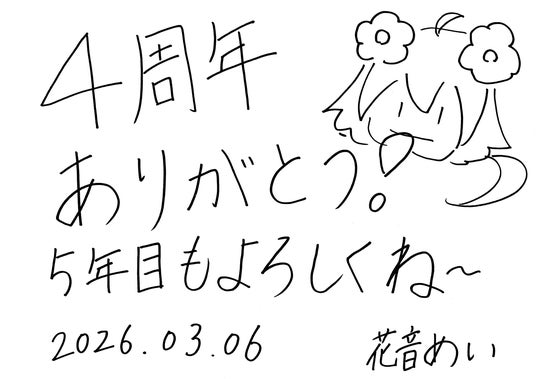 4周年
ありがとう!
5年目もよろしくね~
2026.03.06
花音めい